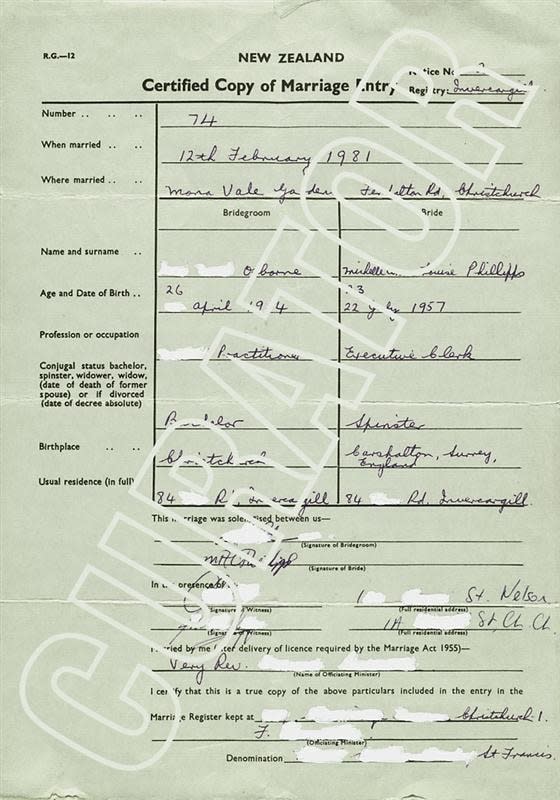 R.G.—12
NEW ZEALAND
Certified Copy of Marriage Entry
Notice No
Registry: Invercargill
Number .. .. ..
74
When married .. ..
12th February 1981
Where married .. ..
Mona Vale Rd, Christchurch
Bridegroom
Bride
Name and surname ..
Louise Phillipps
Age and Date of Birth ..
26
April
22 July 1957
Profession or occupation
Practitioner
Executive Clerk
Conjugal status bachelor,
spinster, widower, widow,
(date of death of former
spouse) or if divorced
(date of decree absolute)
Bachelor
Spinster
Birthplace .. ..
Christchurch
Carshalton, Surrey,
England
Usual residence (in full)
84 Rd. Invercargill
84 Rd. Invercargill
This marriage was solemnised between us—
(Signature of Bridegroom)
(Signature of Bride)
In the presence of
St. Nelson
(Signature of Witness)
(Full residential address)
1A St, Ch. Ch
(Signature of Witness)
(Full residential address)
Married by me (after delivery of licence required by the Marriage Act 1955)—
Very Rev.
(Name of Officiating Minister)
I certify that this is a true copy of the above particulars included in the entry in the
Marriage Register kept at Christchurch 1.
F.
(Officiating Minister)
Denomination St Francis
CURATOR